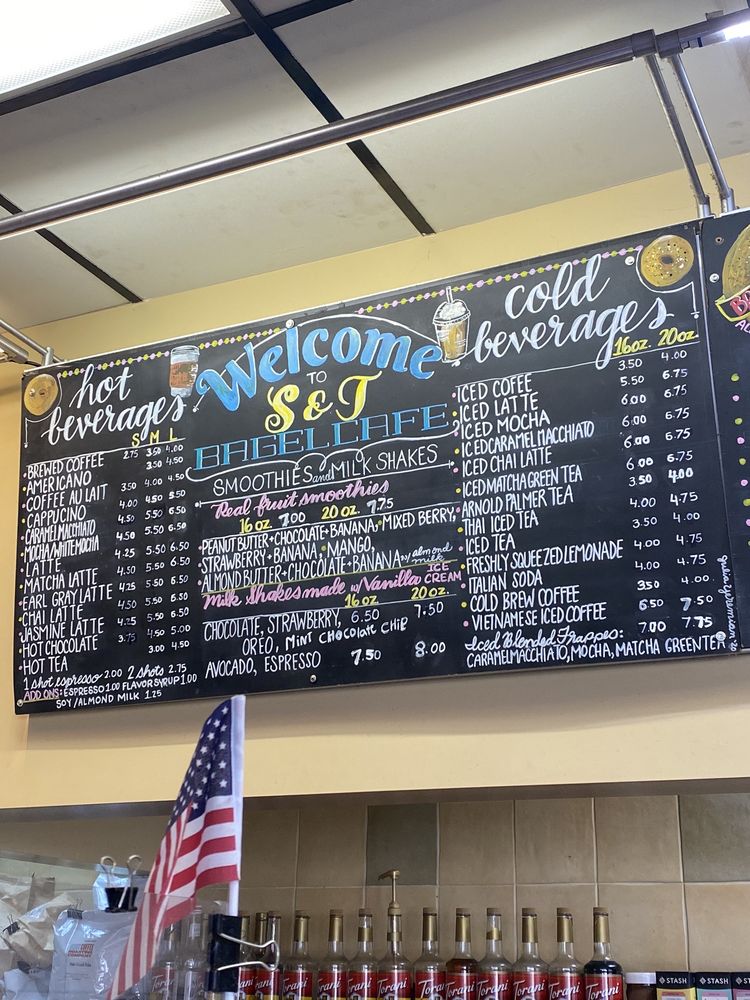 hot beverages
S M L
BREWED COFFEE 2.75 3.50 4.00
AMERICANO 3.50 4.50
COFFEE AU LAIT 3.50 4.00 4.50
CAPPUCINO 4.00 4.50 5.50
CARAMEL MACCHIATO 4.50 5.50 6.50
MOCHA/WHITE MOCHA 4.50 5.50 6.50
LATTE 4.25 5.50 6.50
MATCHA LATTE 4.50 5.50 6.50
EARL GRAY LATTE 4.25 5.50 6.50
CHAI LATTE 4.50 5.50 6.50
JASMINE LATTE 4.50 5.50 6.50
HOT CHOCOLATE 3.75 4.50 5.00
HOT TEA 3.00 4.50
1 shot espresso 2.00 2 shots 2.75
ADD ONS: ESPRESSO 1.00 FLAVOR SYRUP 1.00
SOY/ALMOND MILK 1.25
Welcome
TO
S & T
BAGEL CAFE
SMOOTHIES and MILK SHAKES
Real fruit smoothies
16 oz. 7.00 20 oz. 7.75
PEANUT BUTTER + CHOCOLATE + BANANA • MIXED BERRY
STRAWBERRY + BANANA • MANGO,
ALMOND BUTTER + CHOCOLATE + BANANA w/ almond milk
Milk Shakes made w/ Vanilla ICE CREAM
16 oz. 20 oz.
CHOCOLATE, STRAWBERRY, 6.50 7.50
OREO, MINT CHOCOLATE CHIP
AVOCADO, ESPRESSO 7.50 8.00
cold beverages
16oz. 20oz.
ICED COFEE 3.50 4.00
ICED LATTE 5.50 6.75
ICED MOCHA 6.00 6.75
ICED CARAMEL MACCHIATO 6.00 6.75
ICED CHAI LATTE 6.00 6.75
ICED MATCHA GREEN TEA 6.00 6.75
ARNOLD PALMER TEA 3.50 4.00
THAI ICED TEA 4.00 4.75
ICED TEA 3.50 4.00
FRESHLY SQUEEZED LEMONADE 4.00 4.75
ITALIAN SODA 4.00 4.75
COLD BREW COFFEE 3.50 4.00
VIETNAMESE ICED COFFEE 6.50 7.50
Iced Blended Frappes: 7.00 7.75
CARAMEL MACCHIATO, MOCHA, MATCHA GREEN TEA
Torani
Torani
Torani
Torani
Torani
Torani
Torani
Torani
Torani
Torani
STASH
STASH
STASH